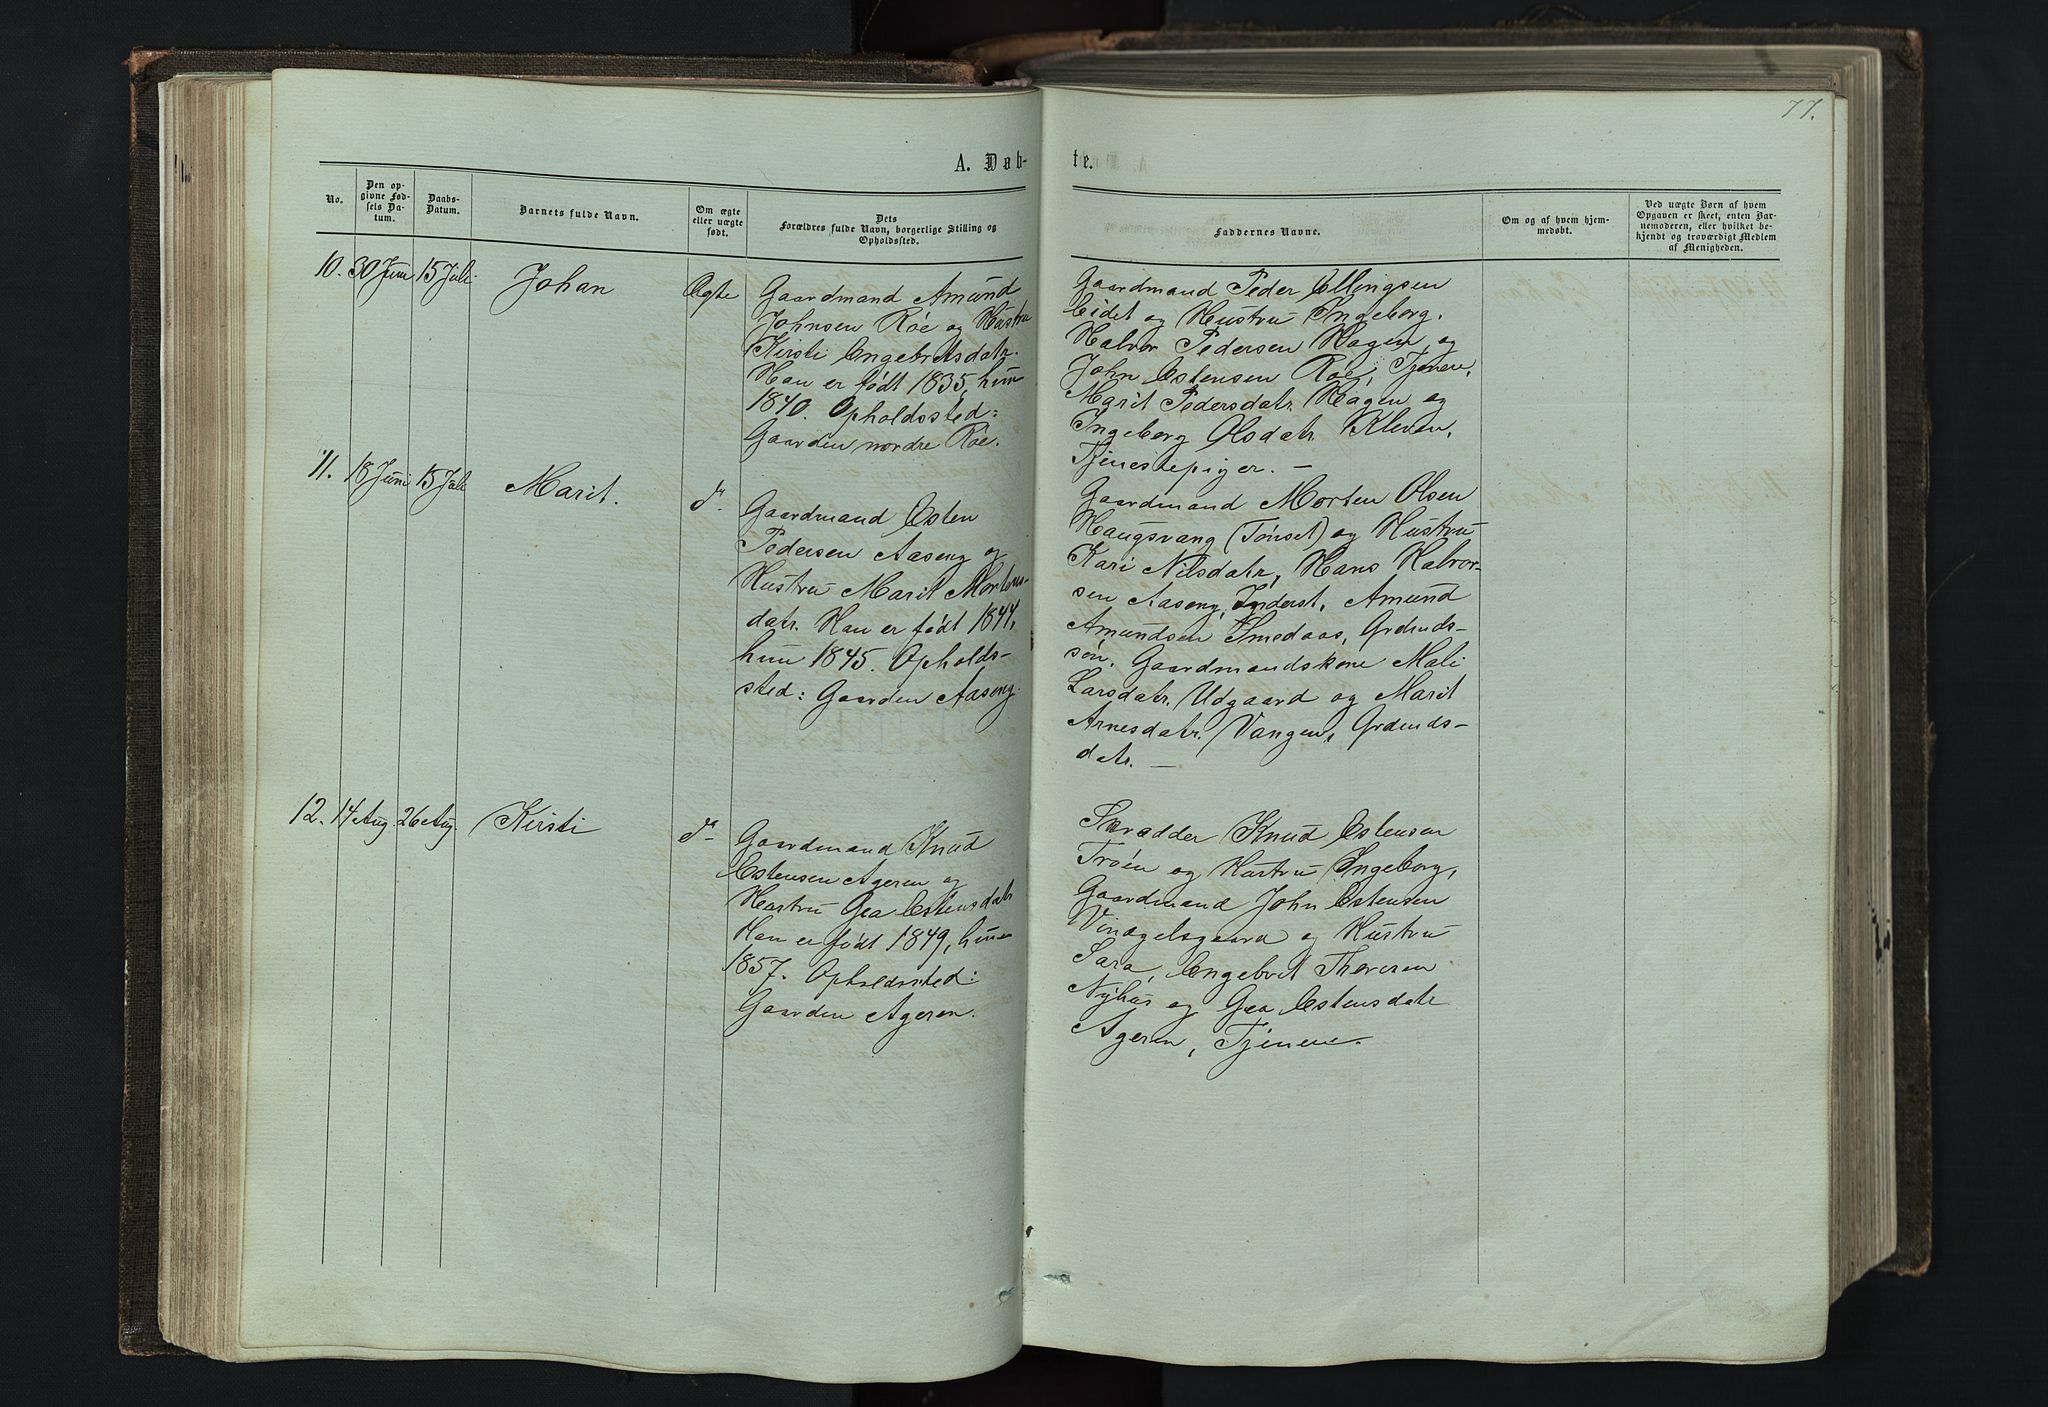 77.
A. Døb-
te.
No.
Den op-
givne Fød-
sels Da-
tum.
Daabs-
Datum.
Barnets fulde Navn.
Om ægte
eller uægte
født.
Dets
Forældres fulde Navn, borgerlige Stilling og
Opholdssted.
Faddernes Navne.
Om og af hvem hjem-
medøbt.
Ved uægte Børn af hvem
Opgaven er skeet, enten Bar-
nemoderen, eller hvilket be-
kjendt og troværdigt Medlem
af Menigheden.
10. 30 Juni 15 Juli. Johan Ægte
Gaardmand Amund
Johnsen Röe og Hustru
Kirsti Engebritsdatr.
Han er født 1835, hun
1840. Opholdssted:
Gaarden nordre Röe.
Gaardmand Peder Ellingsen
Eidet og Hustru Ingeborg.
Halvor Pedersen Hagen og
John Estensen Röe, Tjenere,
Marit Pedersdatr. Hagen og
Ingeborg Olsdatr. Kleven,
Tjenestepiger. –
11. 18 Juni 15 Juli Marit. do.
Gaardmand Esten
Pedersen Aaseng og
Hustru Marit Mortens-
datr. Han er født 1844,
hun 1845. Opholds-
sted: Gaarden Aaseng.
Gaardmand Morten Olsen
Haugsvang (Tønset) og Hustru
Kari Nilsdatr, Hans Halvor-
sen Aaseng, Inderst, Amund
Amundsen Smedaas, Grdmds-
søn. Gaardmandskone Mali
Larsdatr. Udgaard og Marit
Arnesdatr. Vangen, Grdmds-
datr. –
12. 14 Aug. 26 Aug. Kirsti do
Gaardmand Knud
Estensen Ageren og
Hustru Gea Estensdatr
Han er født 1849, hun
1857. Opholdssted:
Gaarden Ageren.
Skrædder Knud Estensen
Trøen og Hustru Ingeborg,
Gaardmand John Estensen
Vingelsgaard og Hustru
Sara, Engebret Thoresen
Nyhus og Gea Estensdatr
Ageren, Tjenere.